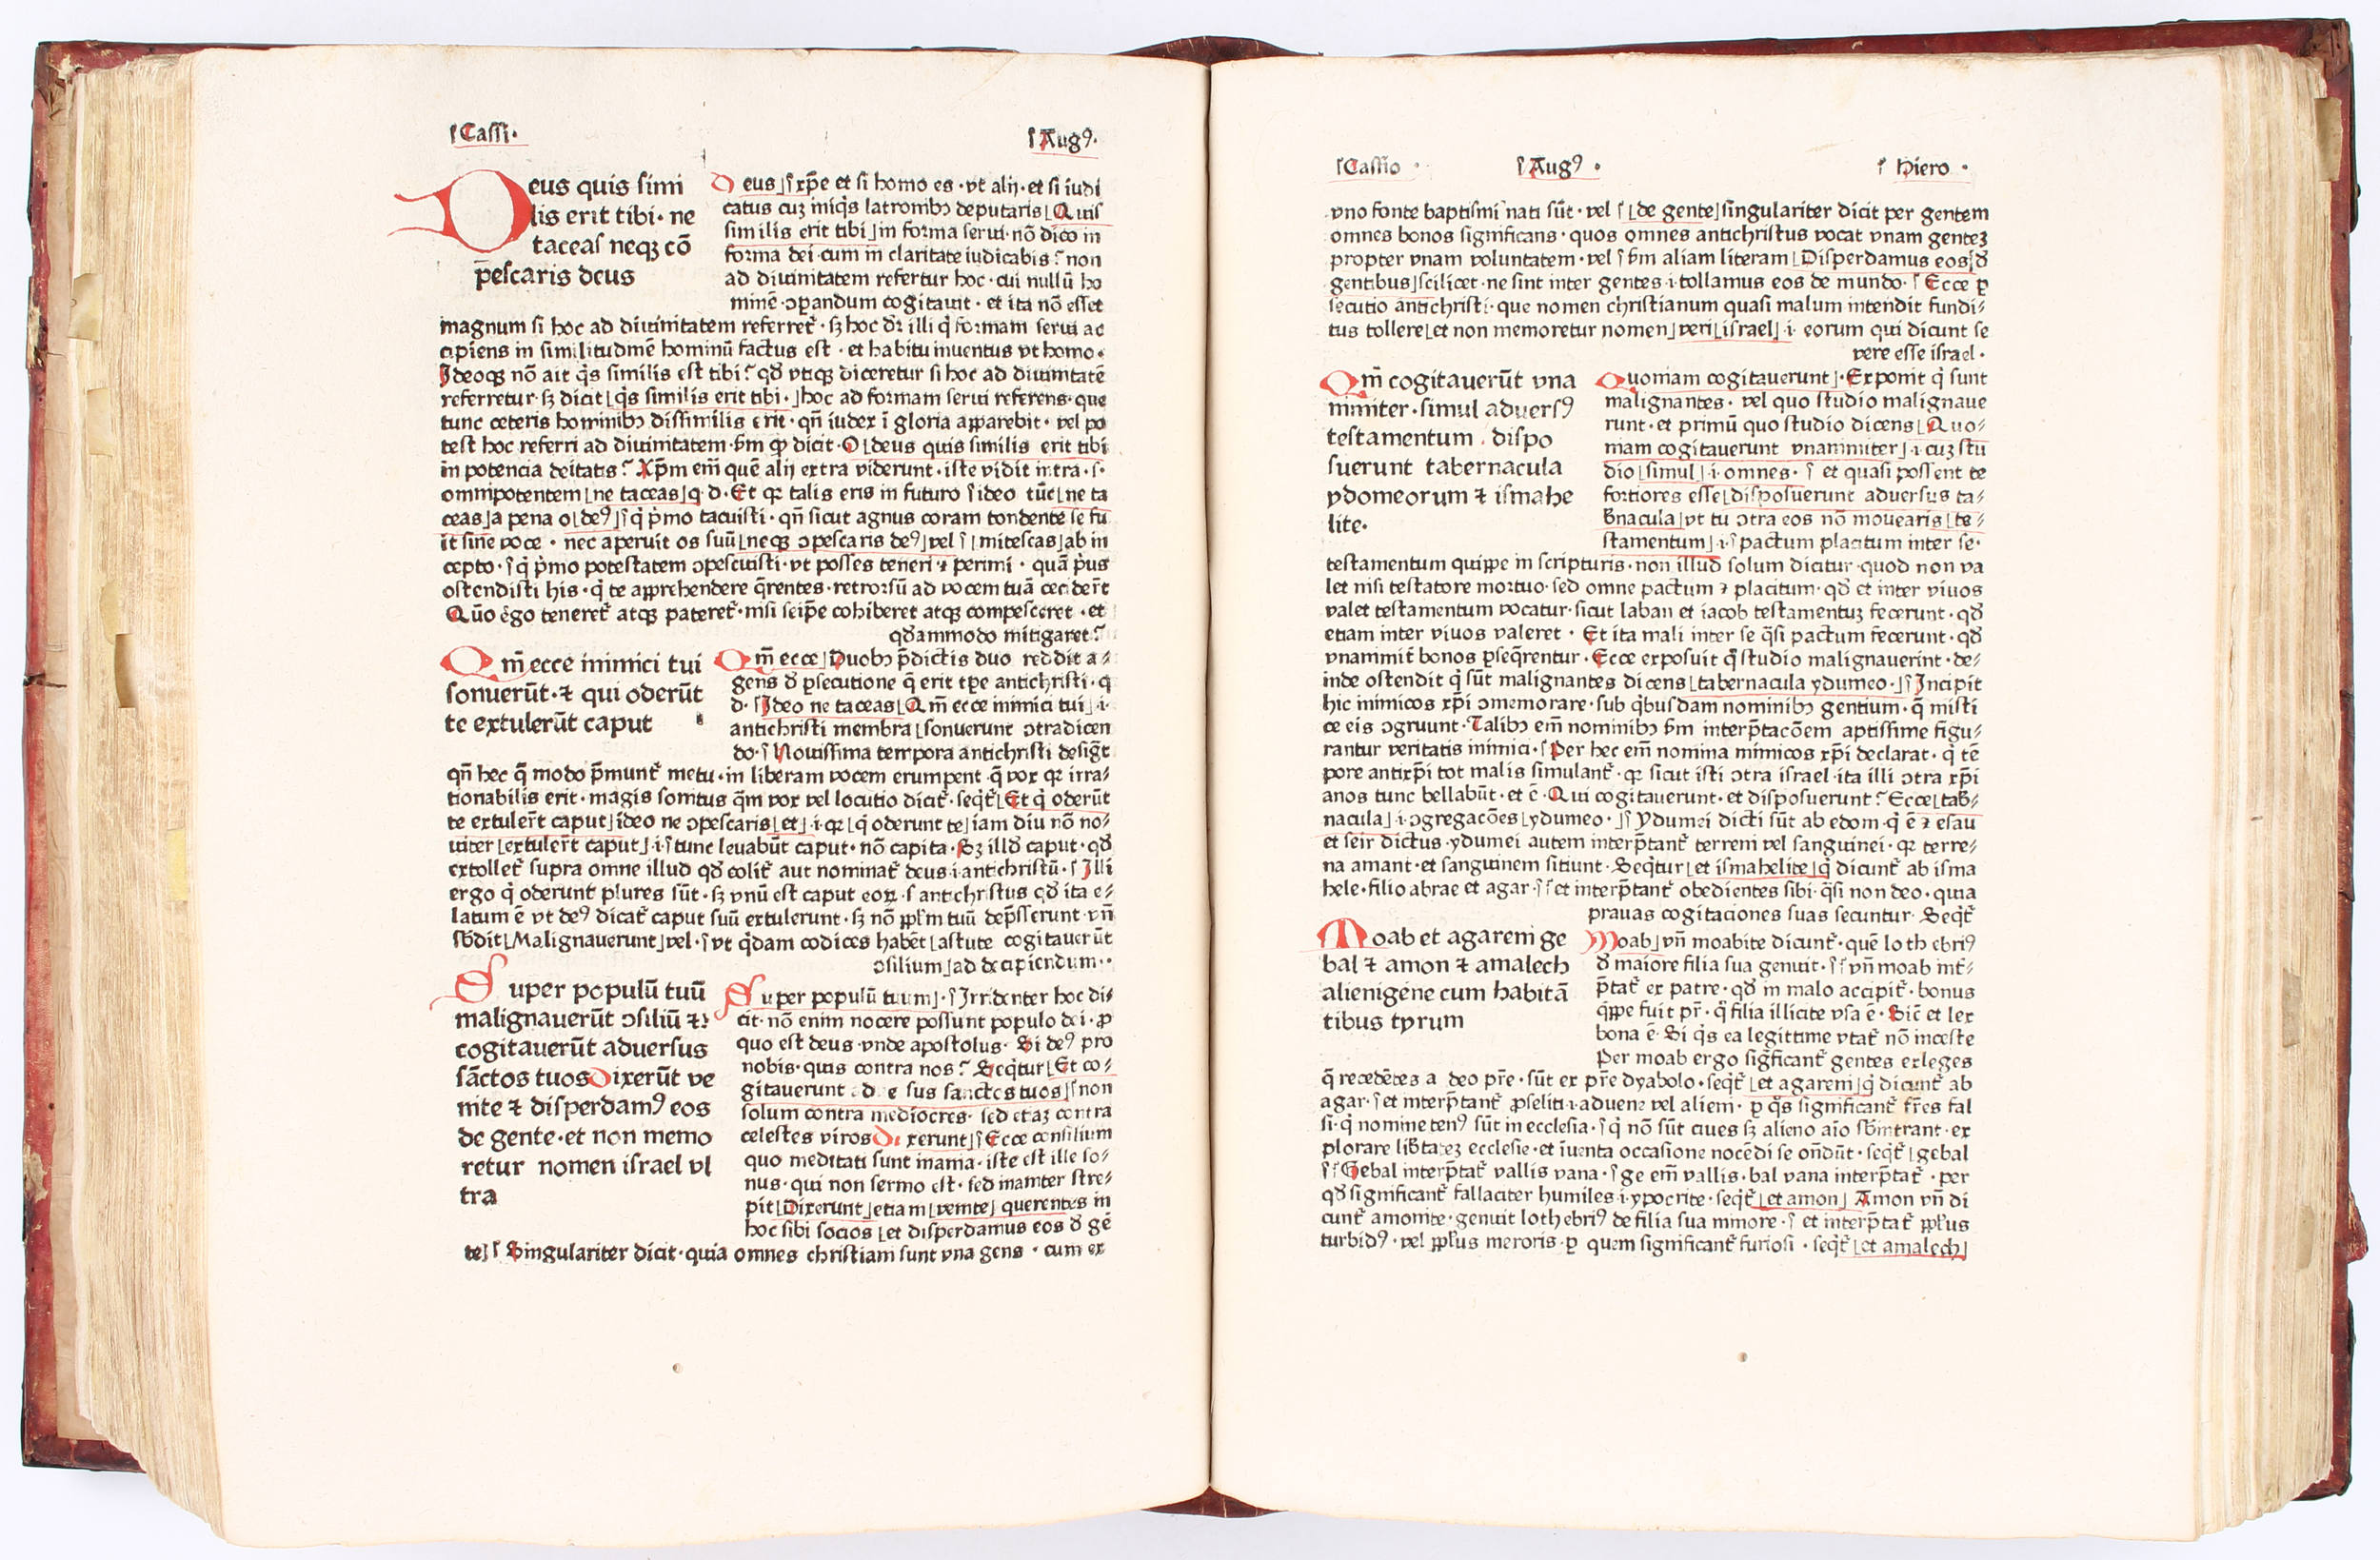 ſCaſſi·
ſAugꝰ·
Deus quis ſimi
lis erit tibi· ne
taceaſ neqꝫ cō
p̄eſcaris deus
Deus⌋ſxp̄e et ſi homo es·vt alij·et ſi iudi
catus cuꝫ iniq̇s latronibꝫ deputaris⌊Quiſ
ſimilis erit tibi⌋in forma ſerui·nō dico in
forma dei·cum in claritate iudicabis? non
ad diuinitatem refertur hoc·cui nullū ho
minē·ↄꝑandum cogitauit·et ita nō eſſet
magnum ſi hoc ad diuinitatem referret᷑·ſꝫ hoc dꝛ̄ illi q̇ formam ſerui ac
cipiens in ſimilitudinē hominū factus eſt·et habitu inuentus vt homo·
Ideoqꝫ nō ait q̇s ſimilis eſt tibi? qđ vtiqꝫ diceretur ſi hoc ad diuinitatē
referretur·ſꝫ dicit⌊q̇s ſimilis erit tibi·⌋hoc ad formam ſerui referens·que
tunc ceteris hominibꝫ diſſimilis erit·qn̄ iudex ī gloria apparebit·vel po
teſt hoc referri ad diuinitatem·ẜm ꝙ dicit·O⌊deus quis ſimilis erit tibi
in potencia deitatis? Xp̄m em̄ quē alij extra viderunt·iſte vidit intra·ſ·
omnipotentem⌊ne taceas⌋q·d·Et qꝛ talis eris in futuro ſideo tūc⌊ne ta
ceas⌋a pena o⌊deꝰ⌋ſq̇ ṗmo tacuiſti·qn̄ ſicut agnus coram tondente ſe fu
it ſine voce·nec aperuit os ſuū⌊neqꝫ ↄpeſcaris deꝰ⌋vel ſ⌊miteſcas⌋ab in
cepto·ſq̇ ṗmo poteſtatem ↄpeſcuiſti·vt poſſes teneri ⁊ perimi·quā ṗus
oſtendiſti his·q̇ te apprehendere q̄rentes·retrorſū ad vocem tuā cecider̄t
Quō ego teneret᷑ atqꝫ pateret᷑·niſi ſeip̄e cohiberet atqꝫ compeſceret·et
qđammodo mitigaret?
Qm̄ ecce inimici tui
ſonuerūt·⁊ qui oderūt
te extulerūt caput
Qm̄ ecce⌋Duobꝫ p̄dictis duo reddit a⸗
gens đ ꝑſecutione q̄ erit tꝑe antichriſti·q
d·ſIdeo ne taceas⌊Qm̄ ecce inimici tui⌋·i·
antichriſti membra⌊ſonuerunt ↄtradicen
do·ſNouiſſima tempora antichriſti deſigt̄
qn̄ hec q̄ modo p̄munt᷑ metu·in liberam vocem erumpent·q̄ vox qꝛ irra⸗
tionabilis erit·magis ſonitus q̄m vox vel locutio dicit᷑·ſeqt᷑⌊Et q̇ oderūt
te extuler̄t caput⌋ideo ne ↄpeſcaris⌊et⌋·i·qꝛ⌊q̇ oderunt te⌋iam diu nō no⸗
uiter⌊extuler̄t caput⌋·i·ſtunc leuabūt caput·nō capita·ſꝫ illđ caput·qđ
extollet᷑ ſupra omne illud qđ colit᷑ aut nominat᷑ deus·i·antichriſtū·ſIlli
ergo q̇ oderunt plures ſūt·ſꝫ vnū eſt caput eoꝝ·ſantchriſtus qđ ita e⸗
latum ē vt deꝰ dicat᷑ caput ſuū extulerunt·ſꝫ nō pp̄lm tuū dep̄ſſerunt·vn̄
ſb̄dit⌊Malignauerunt⌋vel·ſvt q̇dam codices habēt⌊aſtute cogitauerūt
ↄſilium⌋ad decipiendum··
Super populū tuū
malignauerūt ↄſiliū ⁊ꝛ
cogitauerūt aduerſus
ſāctos tuosDixerūt ve
nite ⁊ diſperdamꝰ eos
de gente·et non memo
retur nomen iſrael vl
tra
Super populū tuum⌋·ſIrridenter hoc di⸗
cit·nō enim nocere poſſunt populo dei·ꝓ
quo eſt deus·vnde apoſtolus·Si deꝰ pro
nobis·quis contra nos? Seqtur⌊Et co⸗
gitauerunt ad e ſus ſanctes tuos⌋ſnon
ſolum contra mediocres·ſed etaꝫ contra
celeſtes virosDi xerunt⌋ſEcce conſilium
quo meditati ſunt inania·iſte eſt ille ſo⸗
nus·qui non ſermo eſt·ſed inaniter ſtre⸗
pit⌊Dixerunt⌋etiam⌊venite⌋querentes in
hoc ſibi ſocios⌊et diſperdamus eos đ gē
te⌋ſSingulariter dicit·quia omnes chriſtiani ſunt vna gens·cum ex
ſCaſſio·
ſAugꝰ·
ſHiero·
vno fonte baptiſmi nati ſūt·vel ſ⌊de gente⌋ſingulariter dicit per gentem
omnes bonos ſignificans·quos omnes antichriſtus vocat vnam genteꝫ
propter vnam voluntatem·vel ſẜm aliam literam⌊Diſperdamus eos⌋đ
gentibus⌋ſcilicet·ne ſint inter gentes·i·tollamus eos de mundo·ſEcce ꝑ
ſecutio antichriſti·que nomen chriſtianum quaſi malum intendit fundi⸗
tus tollere⌊et non memoretur nomen⌋veri⌊iſrael⌋·i·eorum qui dicunt ſe
vere eſſe iſrael·
Qm̄ cogitauerūt vna
nimiter·ſimul aduerſꝰ
teſtamentum diſpo
ſuerunt tabernacula
ydomeorum ⁊ iſmahe
lite·
Quoniam cogitauerunt⌋·Exponit q̇ ſunt
malignantes·vel quo ſtudio malignaue
runt·et primū quo ſtudio dicens⌊Quo⸗
niam cogitauerunt vnanimiter⌋·i·cuꝫ ſtu
dio⌊ſimul⌋·i·omnes·ſet quaſi poſſent te
fortiores eſſe⌊diſpoſuerunt aduerſus ta⸗
b̄nacula⌋vt tu ↄtra eos nō mouearis⌊te⸗
ſtamentum⌋·i·ſpactum placitum inter ſe·
teſtamentum quippe in ſcripturis·non illud ſolum dicitur·quod non va
let niſi teſtatore mortuo·ſed omne pactum ⁊ placitum·qđ et inter viuos
valet teſtamentum vocatur·ſicut laban et iacob teſtamentuꝫ fecerunt·qđ
etiam inter viuos valeret·Et ita mali inter ſe q̄ſi pactum fecerunt·qđ
vnanimit᷑ bonos ꝑſeq̄rentur·Ecce expoſuit q̊ ſtudio malignauerint·de⸗
inde oſtendit q̇ ſūt malignantes dicens⌊tabernacula ydumeo·⌋ſIncipit
hic inimicos xp̄i ↄmemorare·ſub q̇buſdam nominibꝫ gentium·q̄ miſti
ce eis ↄgruunt·Talibꝫ em̄ nominibꝫ ẜm interp̄tacōem aptiſſime figu⸗
rantur veritatis inimici·ſPer hec em̄ nomina inimicos xp̄i declarat·q̇ tē
pore antixp̄i tot malis ſimulant᷑·qꝛ ſicut iſti ↄtra iſrael·ita illi ↄtra xp̄i
anos tunc bellabūt·et ē·Qui cogitauerunt·et diſpoſuerunt? Ecce⌊tab̄⸗
nacula⌋·i·ↄgregacōes⌊ydumeo·⌋ſYdumei dicti ſūt ab edom·q̇ ē ⁊ eſau
et ſeir dictus·ydumei autem interp̄tant᷑ terreni vel ſanguinei·qꝛ terre⸗
na amant·et ſanguinem ſitiunt·Seqtur⌊et iſmahelite⌋q̇ dicunt᷑ ab iſma
hele·filio abrae et agar·ſſet interp̄tant᷑ obedientes ſibi·q̄ſi non deo·quia
prauas cogitaciones ſuas ſecuntur·Seqt᷑
Moab et agareni ge
bal ⁊ amon ⁊ amalech
alienigene cum habitā
tibus tyrum
Moab⌋vn̄ moabite dicunt᷑·quē loth ebriꝰ
đ maiore filia ſua genuit·ſſvn̄ moab int᷑⸗
p̄tat᷑ ex patre·qđ in malo accipit᷑·bonus
q̇ppe fuit pr̄·q̊ filia illicite vſa ē·Sic̄ et lex
bona ē·Si q̇s ea legittime vtat᷑ nō inceſte
Per moab ergo ſiḡficant᷑ gentes exleges
q̄ recedētes a deo pr̄e·ſūt ex pr̄e dyabolo·ſeqt᷑⌊et agareni⌋q̇ dicunt᷑ ab
agar·ſet interp̄tant᷑ ꝓſeliti·i·aduene vel alieni·ꝑ q̊s ſignificant᷑ fr̄es fal
ſi·q̇ nomine tenꝰ ſūt in eccleſia·ſq̇ nō ſūt ciues ſꝫ alieno aīo ſb̄intrant·ex
plorare lib̄tateꝫ eccleſie·et īuenta occaſione nocēdi ſe on̄dūt·ſeqt᷑⌊gebal
ſſGebal interp̄tat᷑ vallis vana·ſge em̄ vallis·bal vana interp̄tat᷑·per
qđ ſignificant᷑ fallaciter humiles·i·ypocrite·ſeqt᷑⌊et amon⌋Amon vn̄ di
cunt᷑ amonite·genuit loth ebriꝰ de filia ſua minore·ſet interp̄tat᷑ pp̄lus
turbidꝰ·vel pp̄lus meroris·ꝑ quem ſignificant᷑ furioſi·ſeqt᷑⌊et amalech⌋